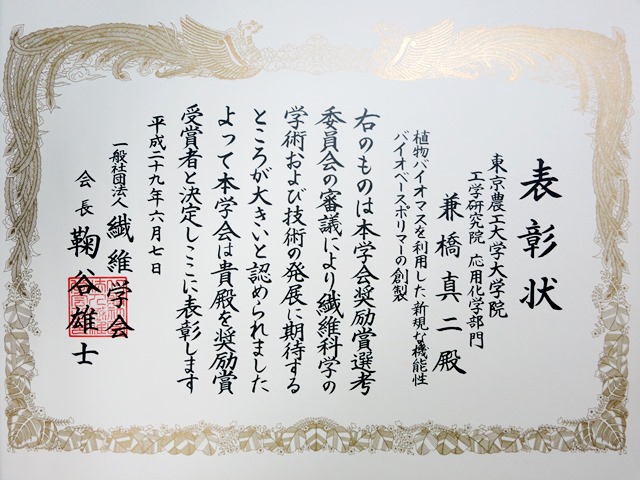 表彰状
東京農工大学大学院
工学研究院 応用化学部門
兼橋真二殿
植物バイオマスを利用した新規な機能性
バイオベースポリマーの創製
右のものは本学会奨励賞選考
委員会の審議により繊維科学の
学術および技術の発展に期待する
ところが大きいと認められました
よって本学会は貴殿を奨励賞
受賞者と決定しここに表彰します
平成二十九年六月七日
一般社団法人 繊維学会
会長 鞠谷雄士